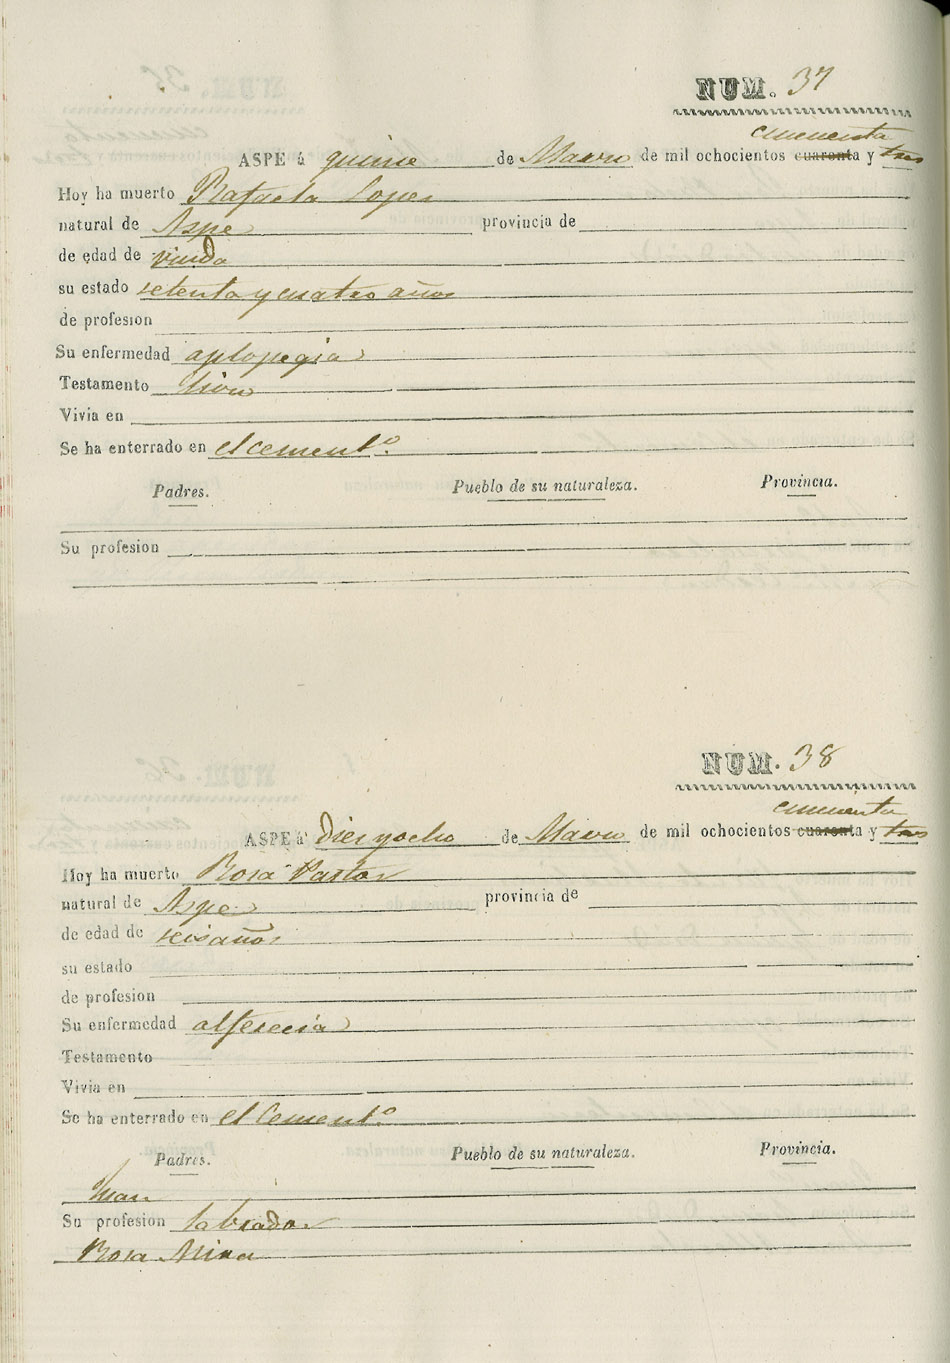 NUM. 37
cincuenta
ASPE á quince de Marzo de mil ochocientos cuarenta y tres
Hoy ha muerto Rafaela Lopez
natural de Aspe provincia de
de edad de viuda
su estado setenta y cuatro años
de profesion
Su enfermedad aplopegia
Testamento
Vivia en
Se ha enterrado en el cement.º
Padres. Pueblo de su naturaleza. Provincia.
Su profesion
NUM. 38
cincuenta
ASPE á Diez y ocho de Marzo de mil ochocientos cuarenta y tres
Hoy ha muerto Rosa Pastor
natural de Aspe provincia de
de edad de seis años
su estado
de profesion
Su enfermedad alferecia
Testamento
Vivia en
Se ha enterrado en el Cement.º
Padres. Pueblo de su naturaleza. Provincia.
Juan
Su profesion labrador
Rosa Mira